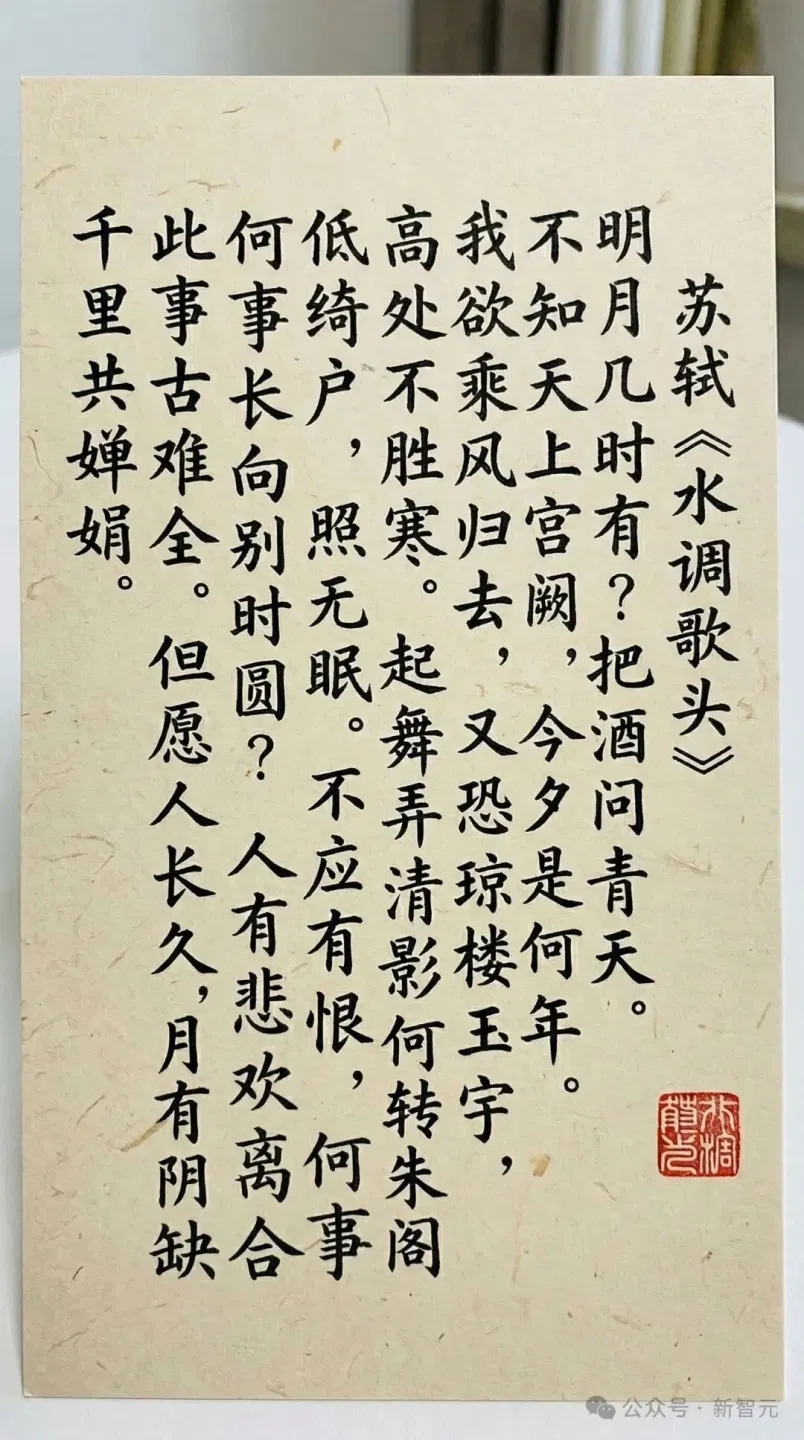 苏轼《水调歌头》
明月几时有?把酒问青天。
不知天上宫阙,今夕是何年。
我欲乘风归去,又恐琼楼玉宇,
高处不胜寒。起舞弄清影何转朱阁
低绮户,照无眠。不应有恨,何事
何事长向别时圆?人有悲欢离合
此事古难全。但愿人长久,月有阴缺
千里共婵娟。
公众号·新智元